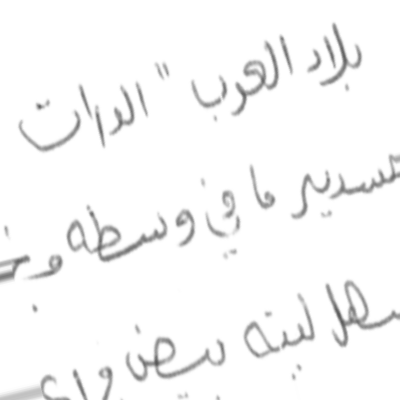 بلاد العرب " الدرات
تستدير ما في وسطه و
سهل لينه بيض و